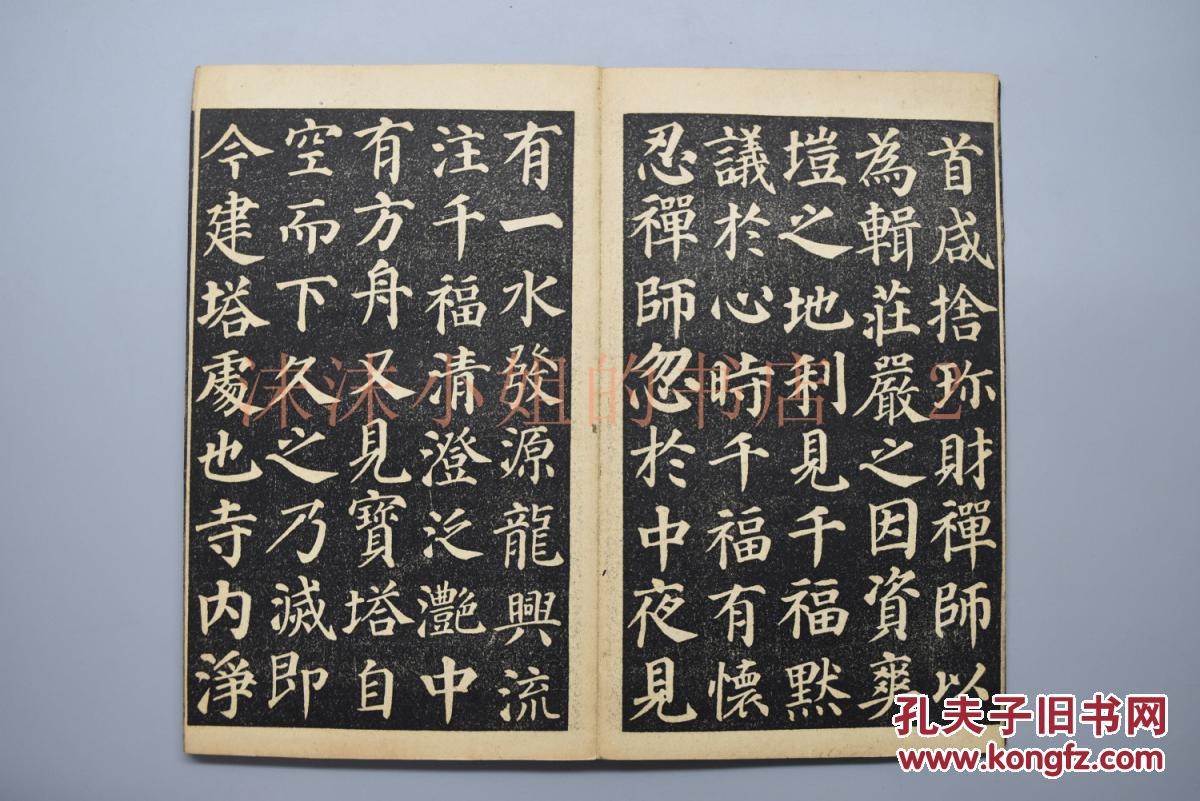 首咸捨珎財禪師以
為輯莊嚴之因資爽
塏之地利見千福默
議於心時千福有懷
忍禪師忽於中夜見
有一水發源龍興流
注千福清澄泛灎中
有方舟又見寶塔自
空而下久之乃滅即
今建塔處也寺内淨
沫沫小姐的书店 2
孔夫子旧书网
www.kongfz.com